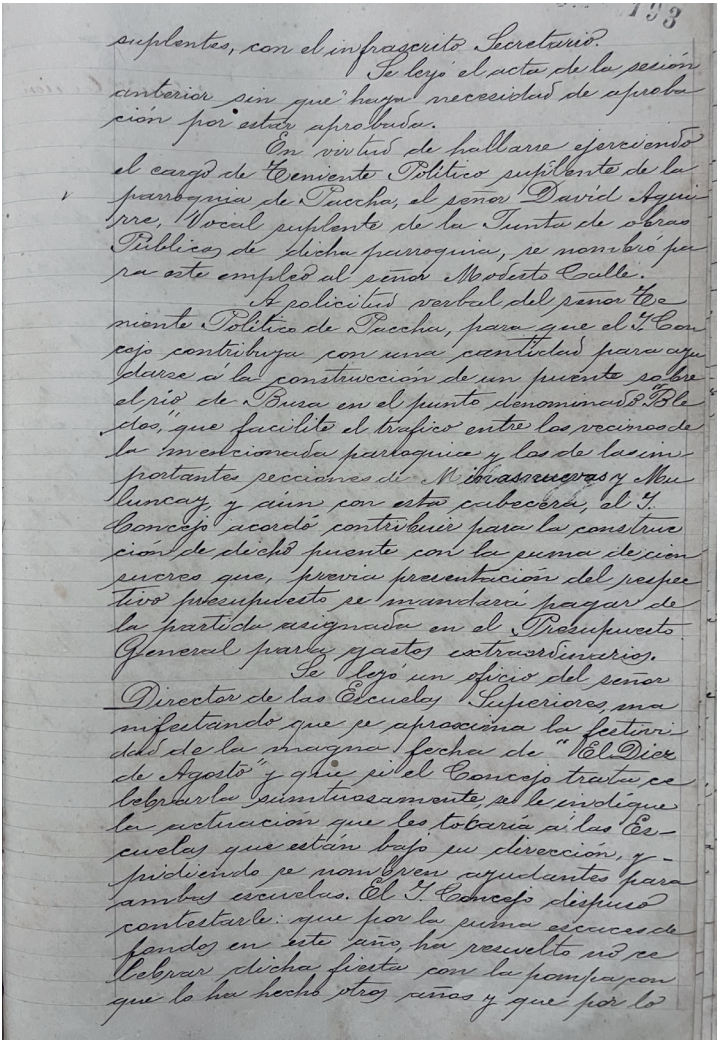 193
suplentes, con el infrascrito Secretario.
Se leyó el acta de la sesión
anterior sin que haya necesidad de aproba
ción por estar aprobada.
En virtud de hallarse ejerciendo
el cargo de Teniente Político suplente de la
parroquia de Paccha, el señor David Agui
rre, Vocal suplente de la Junta de obras
Públicas de dicha parroquia, se nombró pa
ra este empleo al señor Modesto Calle.
A solicitud verbal del señor Te
niente Político de Paccha, para que el I. Con
cejo contribuya con una cantidad para ayu
darse á la construcción de un puente sobre
el río de Busa en el punto denominado "Ble
dos," que facilite el trafico entre los vecinos de
la mencionada parroquia y los de las im
portantes secciones de Minasnuevas y Mu
luncay, y aún con esta cabecera, el I.
Concejo acordó contribuir para la construc
ción de dicho puente con la suma de cien
sucres que, previa presentación del respec
tivo presupuesto se mandará pagar de
la partida asignada en el Presupuesto
General para gastos extraordinarios.
Se leyó un oficio del señor
Director de las Escuelas Superiores, ma
nifestando que se aproxima la festivi
dad de la magna fecha de "El Diez
de Agosto" y que si el Concejo trata ce
lebrarla suntuosamente, se le indique
la actuación que les tocaría á las Es-
cuelas que están bajo su dirección, y -
pidiendo se nombren ayudantes para
ambas escuelas. El I. Concejo dispuso
contestarle: que por la suma escases de
fondos en este año, ha resuelto no ce
lebrar dicha fiesta con la pompa con
que lo ha hecho otros años y que por lo